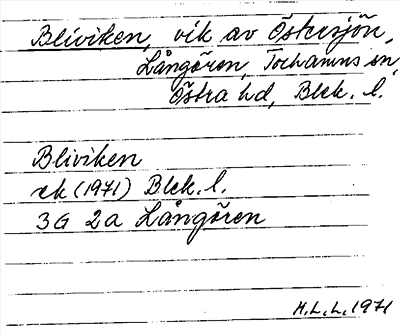 Bliviken, vik av Östersjön,
Långören, Torhamns sn,
Östra hd, Blek. l.
Bliviken
ek (1971) Blek. l.
3G 2a Långören
H.L.L. 1971